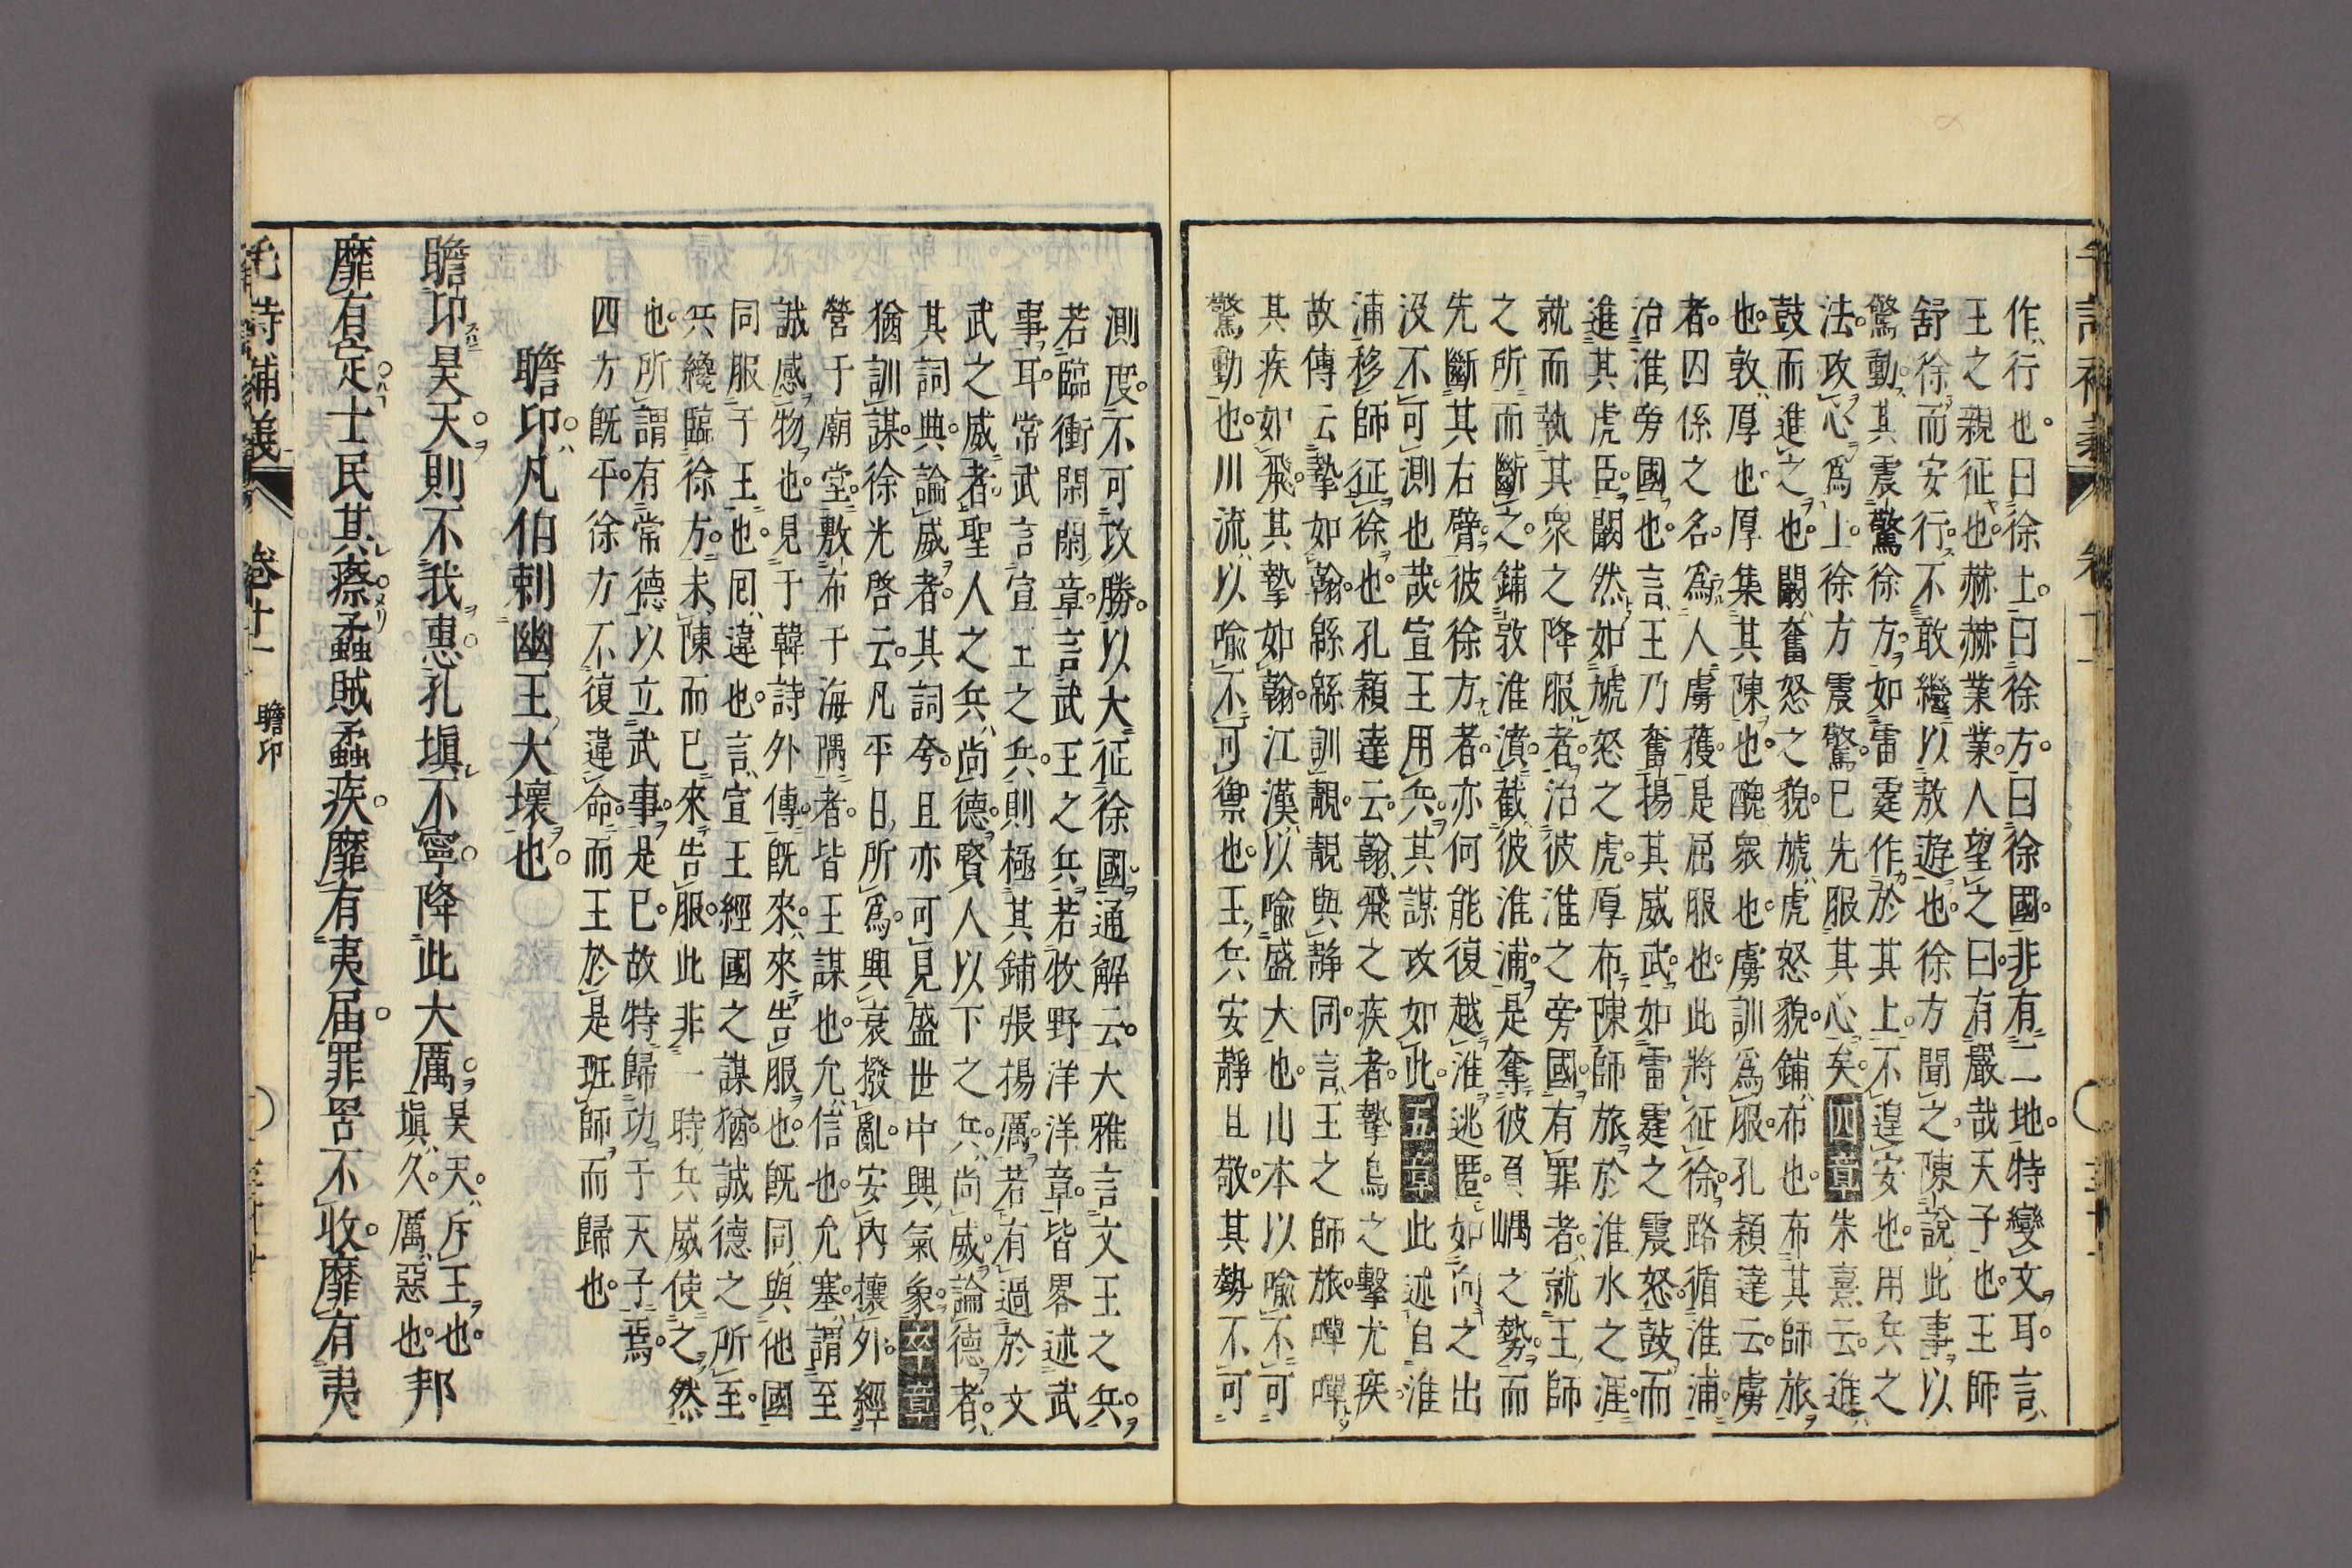 作行也曰徐土曰徐方曰徐國非有二地特變文耳言
王之親征也赫赫業業人望之曰有嚴哉天子也王師
舒徐而安行不敢繼以敖遊也徐方聞之陳說此事以
驚動其震驚徐方如雷霆作於其上不遑安也用兵之
法攻心爲上徐方震驚已先服其心矣四章朱熹云進
鼓而進之也闞奮怒之貌虓虎怒貌鋪布也布其師旅
也敦厚也厚集其陳也醜衆也虜訓爲服孔穎達云虜
者囚係之名爲人虜獲是屈服也此將征徐路循淮浦
治淮旁國也言王乃奮揚其威武如雷霆之震怒鼓而
進其虎臣闞然如虓怒之虎厚布陳師旅於淮水之涯
就而執其衆之降服者治彼淮之旁國有罪者就王師
之所而斷之鋪敦淮濆截彼淮浦是奪彼負嵎之勢而
先斷其右臂彼徐方者亦何能復越淮逃匿如向之出
沒不可測也哉宣王用兵其謀攻如此五章此述自淮
浦移師征徐也孔穎達云翰飛之疾者摯鳥之擊尤疾
故傳云摯如翰緜緜訓靚靚與靜同言王之師旅嘽嘽
其疾如飛其摯如翰江漢以喻盛大也山本以喻不可
驚動也川流以喻不可禦也王兵安靜且敬其勢不可
測度不可攻勝以大征徐國通解云大雅言文王之兵
若臨衝閑閑章言武王之兵若牧野洋洋章皆畧述武
事耳常武言宣王之兵則極其鋪張揚厲若有過於文
武之威者聖人之兵尚德賢人以下之兵尚威論德者
其詞典論威者其詞夸且亦可見盛世中興氣象卒章
猶訓謀徐光啓云凡平日所爲興衰撥亂安內攘外經
營于廟堂敷布于海隅者皆王謀也允信也允塞謂至
誠感物也見于韓詩外傳旣來來告服也旣同與他國
同服于王也回違也言宣王經國之謀猶誠德之所至
兵纔臨徐方未陳而已來告服此非一時兵威使之然
也所謂有常德以立武事是已故特歸功于天子焉
四方旣平徐方不復違命而王於是班師而歸也
瞻卬凡伯刺幽王大壞也
瞻卬昊天則不我惠孔塡不寧降此大厲昊天斥王也塡久厲惡也邦
靡有定士民其瘵蟊賊蟊疾靡有夷屆罪罟不收靡有夷
毛詩補義 卷十一 瞻卬